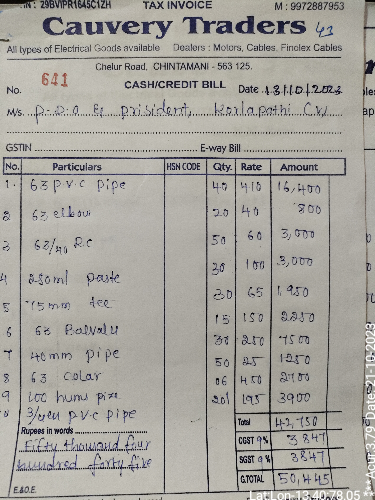 TIN : 29BVIPR1645C1ZH TAX INVOICE M : 9972887953
Cauvery Traders 43
All types of Electrical Goods available Dealers : Motors, Cables, Finolex Cables
Chelur Road, CHINTAMANI - 563 125.
No. 641 CASH/CREDIT BILL Date 13/10/2023
M/s. P.D.O & prisident, Korlapathi
GSTIN E-way Bill
No. Particulars HSN CODE Qty. Rate Amount
1 63 p.v.c pipe 40 410 16,400
2 63 elbow 20 40 800
3 63/40 R.C 50 60 3,000
4 250ml paste 30 100 3,000
5 75mm tee 30 65 1,950
6 63 Balvalu 15 150 2250
7 40mm pipe 30 250 7500
8 63 Colar 50 25 1250
9 100 hums pipe 06 450 2700
3/4 p.v.c pipe 20 195 3900
Rupees in words Total 42,750
Fifty thousand four CGST 9% 3847
hundred forty five SGST 9% 3847
E.&O.E. G.TOTAL 50,445